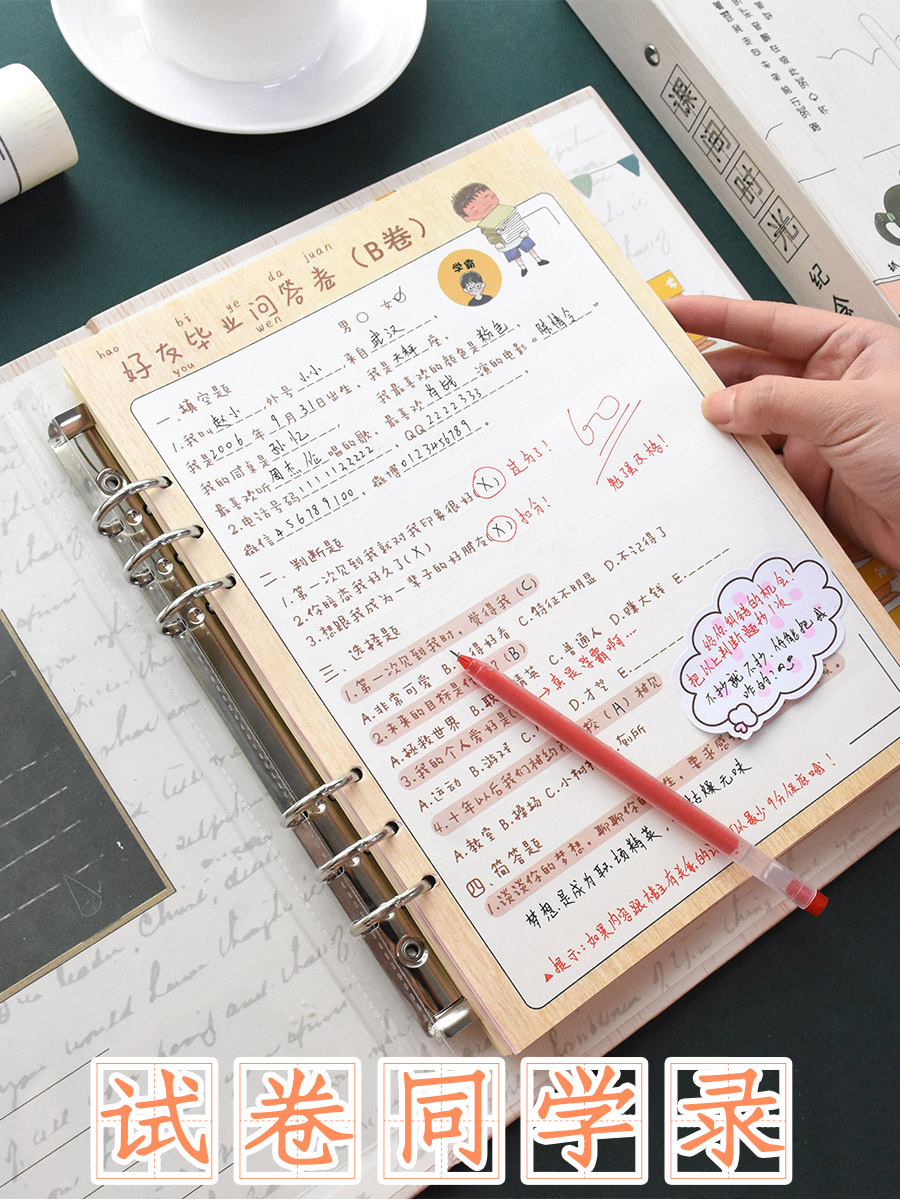 课间时光
纪念
hao bi ye da juan
好友毕业问答卷（B卷）
you wen
学霸
男 女
一、填空题
1.我叫赵小，外号小小，来自武汉，
我是2006年9月31日出生，我是天秤座，
我的闺臭是孙忆，我最喜欢的颜色是粉色，
最喜欢听周杰伦唱的歌，最喜欢肖战演的电影“陈情令”
2.电话号码1111122222，QQ2222333，
微信456789100，微博0123456789。
60
勉强及格！
二、判断题
1.第一次见到我就对我印象很好(X) 过分了！
2.你暗恋我好久了(X)
3.想跟我成为一辈子的好朋友(X) 扣分！
三、选择题
1.第一次见到我时，觉得我(C)
A.非常可爱 B. 得好看 C.特征不明显 D.不记得了
2.未来的目标是 ？(B)
A.拯救世界 B.职 精英 C.普通人 D.赚大钱 E.
→真是学霸啊…
3.我的个人爱好是
A.运动 B.游戏 C. D.才艺 E.
4.十年以后我们相约 校(A)相见
A.教室 B.操场 C.小树 厕所
四、简答题
1.谈谈你的梦想，聊聊你的 生，要求感
梦想是成为职场精英， 枯燥无味
▲提示:如果内容跟楼主有关系的话 以最少9分保底哦！
给你纠错的机会！
把以上判断题抄1次
不抄就不抄 你能把我
咋的？
试卷同学录